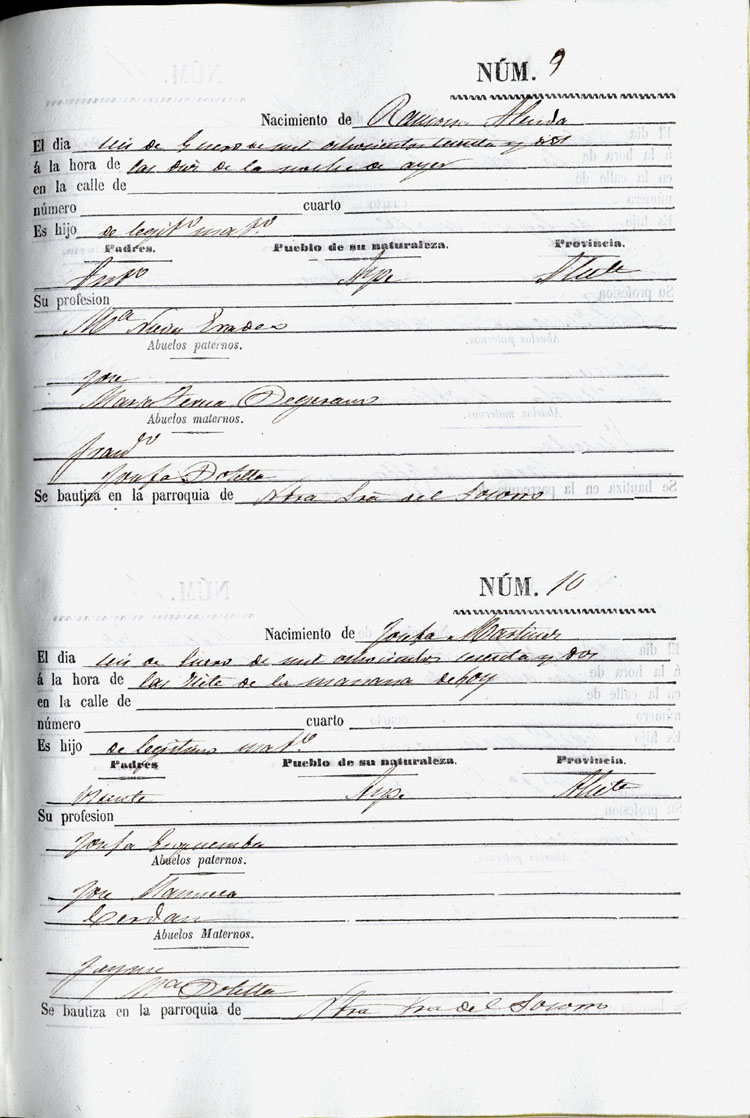 NÚM. 9
Nacimiento de Ramona Alenda
El dia seis de Enero de mil ochocientos y dos
á la hora de las diez de la noche de ayer
en la calle de
número cuarto
Es hijo de legitº matº
Padres. Pueblo de su naturaleza. Provincia.
Antº Aspe Alicte
Su profesion
Mª Nieves
Abuelos paternos.
Jose
Maria Teresa
Abuelos maternos.
Francº
Josefa Botella
Se bautiza en la parroquia de Ntra Sra del Socorro
NÚM. 10
Nacimiento de Josefa Martinez
El dia seis de Enero de mil ochocientos y dos
á la hora de las siete de la mañana de hoy
en la calle de
número cuarto
Es hijo de legitimo matº
Padres Pueblo de su naturaleza. Provincia.
Vicente Aspe Alicte
Su profesion
Josefa
Abuelos paternos.
Jose Manuela
Cerdan
Abuelos Maternos.
Jayme
Mª Botella
Se bautiza en la parroquia de Ntra Sra del Socorro